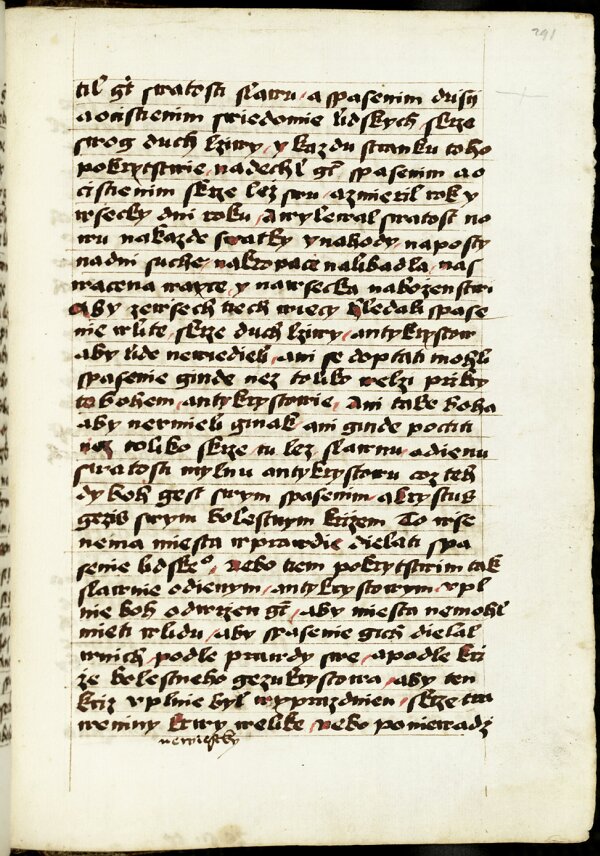 291
til gt swatosti slawu a spasenim dusij
a ocistienim swiedomie lidskych skrze
swog duch lziwy y kazdu stranku toho
pokrytstwie nadechl gt spasenim a o
cistienim skrze lez swu a zmieril rok y
wsecky dni roku A wylewal swatost no
wu na kazde swatky y na hody na posty
na dni suche na kropacie na libadla nas
wacena waxce y na wsecka nabozenstwi
Aby ze wsech tiech wiecy hledali spase
nie w lite skrze duch lziwy antykrystow
aby lide newiedieli ani se doptati mohli
spasenie ginde nez toliko w lzi prikry
to bohem antykrystowie Ani take boha
aby nermieli ginak ani ginde poctiti
nez toliko skrze tu lez slawnu odienu
swatosti mylnu antykrystowu coz teh
dy boh gest swym spasenim a krystus
gezis swym bolestnym krizem To wse
nema miesta w prawdie dielati spa
senie lidske° nebo tiem pokrytstwim tak
slawnie odienym antykrystowym vpl
nie boh odwrzen gt aby miesta nemohl
mieti w lidu aby spasenie gich dielal
w nich podle prawdy swe a podle kri
ze bolestneho gezukrystowa aby ten
kriz vplnie byl wyprazdnien skrze tu
weniny krwy welike nebo poniewadz
newiestky